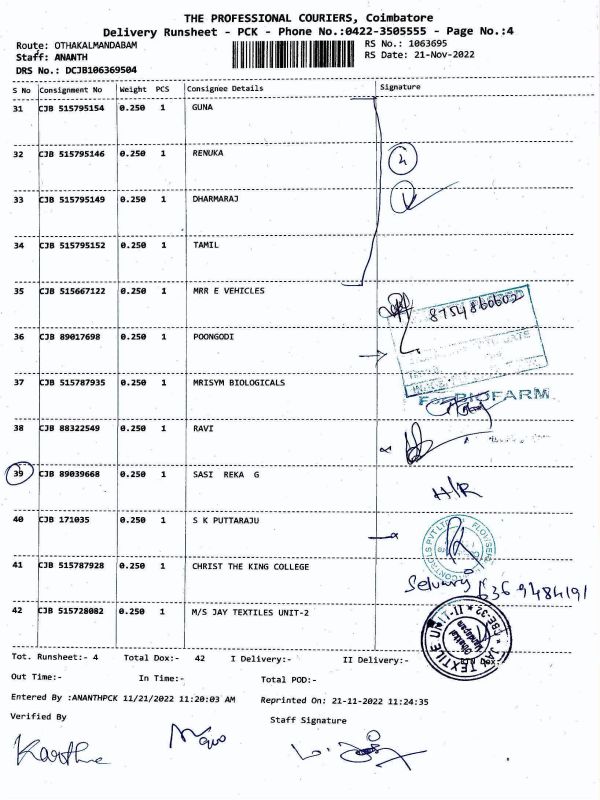 THE PROFESSIONAL COURIERS, Coimbatore
Delivery Runsheet - PCK - Phone No.:0422-3505555 - Page No.:4
Route: OTHAKALMANDABAM RS No.: 1063695
Staff: ANANTH RS Date: 21-Nov-2022
DRS No.: DCJB106369504
S No Consignment No Weight PCS Consignee Details Signature
31 CJB 515795154 0.250 1 GUNA
32 CJB 515795146 0.250 1 RENUKA
33 CJB 515795149 0.250 1 DHARMARAJ
34 CJB 515795152 0.250 1 TAMIL
35 CJB 515667122 0.250 1 MRR E VEHICLES
8754860602
36 CJB 89017698 0.250 1 POONGODI
37 CJB 515787935 0.250 1 MRISYM BIOLOGICALS
For BIOFARM
38 CJB 88322549 0.250 1 RAVI
39 CJB 89039668 0.250 1 SASI REKA G
H/R
40 CJB 171035 0.250 1 S K PUTTARAJU
41 CJB 515787928 0.250 1 CHRIST THE KING COLLEGE
Selvaraj 6369484191
42 CJB 515728082 0.250 1 M/S JAY TEXTILES UNIT-2
JAY TEXTILE UNIT-II
Tot. Runsheet:- 4 Total Dox:- 42 I Delivery:- II Delivery:-
Out Time:- In Time:- Total POD:-
Entered By :ANANTHPCK 11/21/2022 11:20:03 AM Reprinted On: 21-11-2022 11:24:35
Verified By Staff Signature